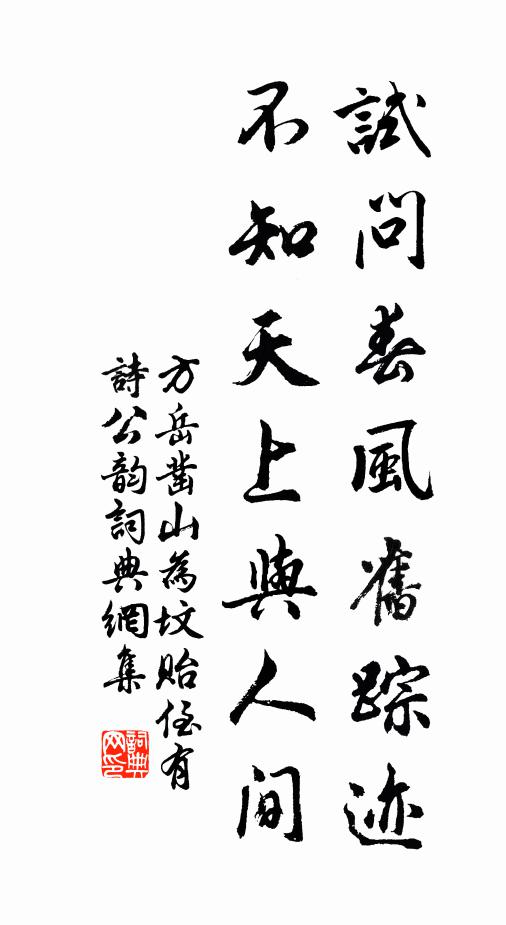 試問春風舊踪迹
不知天上與人間
方岳凿山為坟貽侄有
詩公韵詞典網集
詞典网印